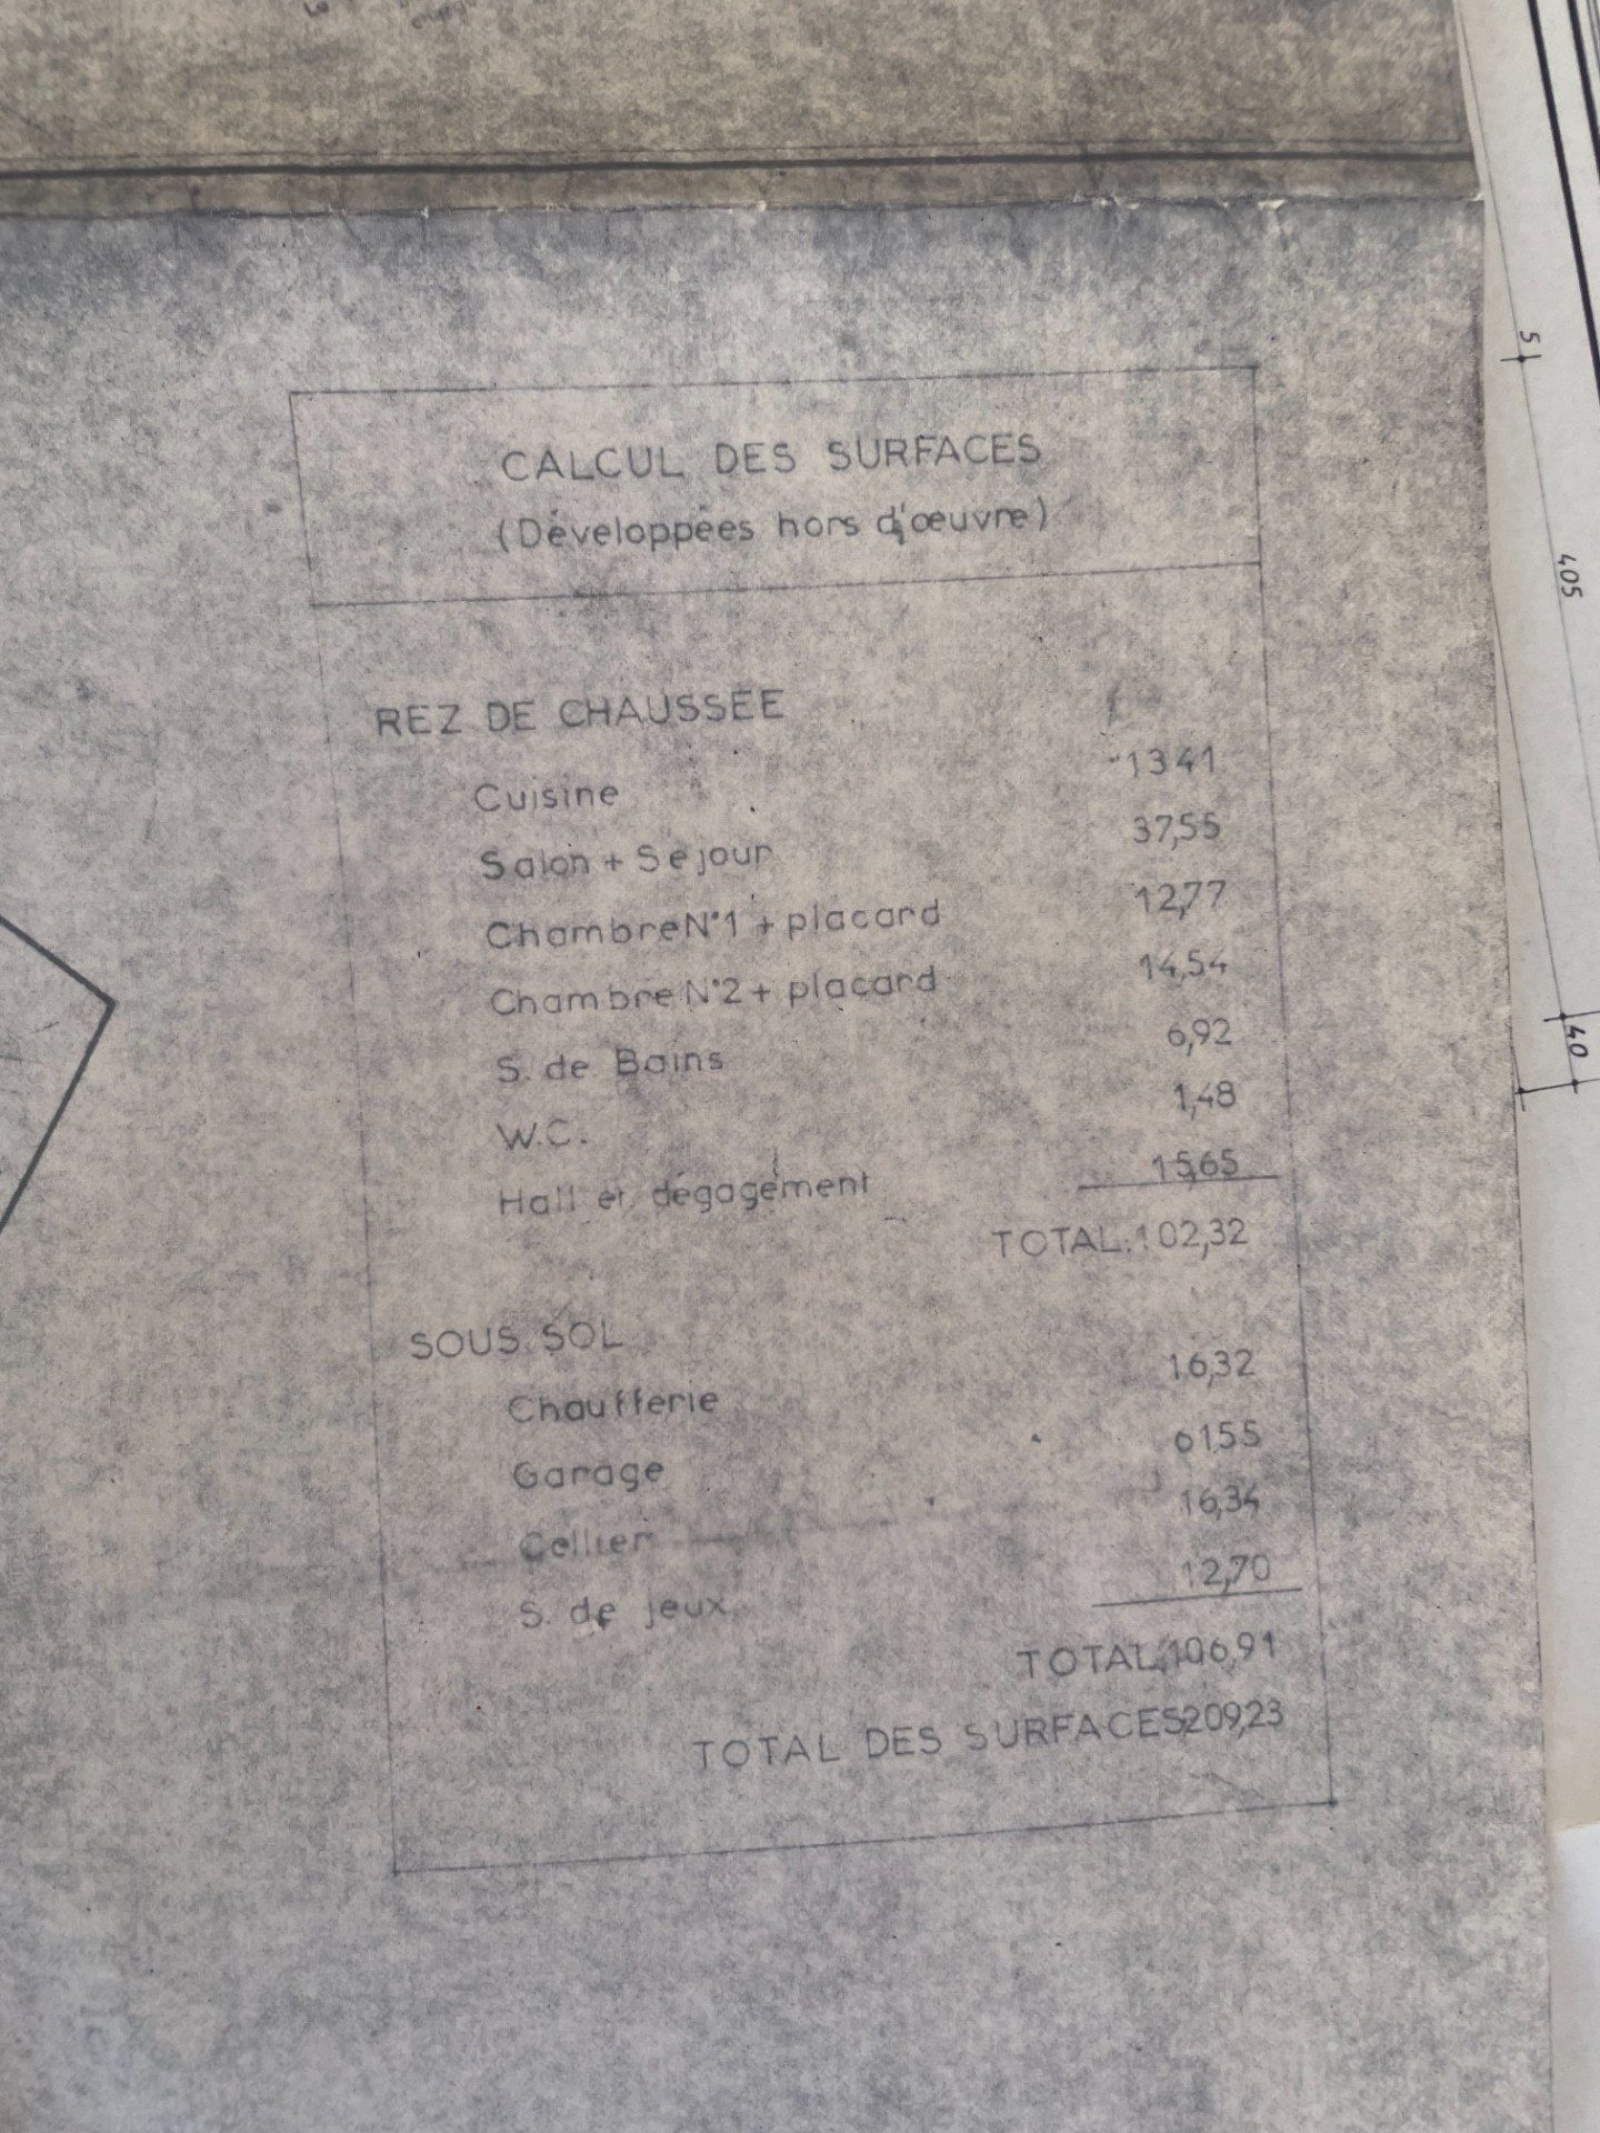 CALCUL DES SURFACES
(Développées hors d'œuvre)
REZ DE CHAUSSEE
Cuisine 13,41
Salon + Sejour 37,55
Chambre N°1 + placard 12,77
Chambre N°2 + placard 14,54
S. de Bains 6,92
W.C. 1,48
Hall et dégagement 15,65
TOTAL: 102,32
SOUS SOL
Chaufferie 16,32
Garage 61,55
Cellier 16,34
S. de jeux 12,70
TOTAL: 106,91
TOTAL DES SURFACES 209,23
5
405
40